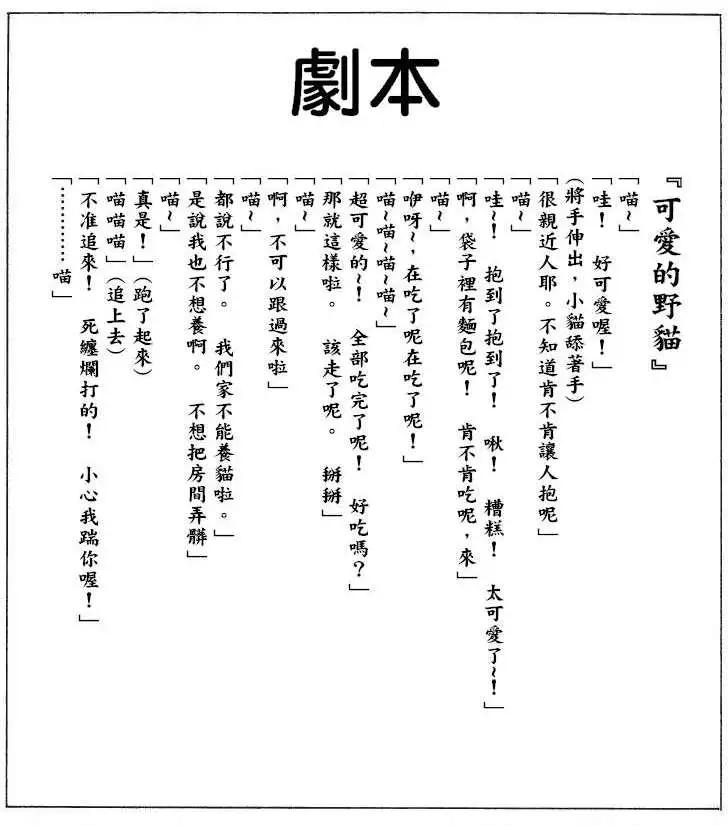 劇本
『可愛的野貓』
「喵~」
「哇！　好可愛喔！」
(將手伸出，小貓舔著手)
「很親近人耶。不知道肯不肯讓人抱呢」
「喵~」
「哇~！　抱到了抱到了！　啾！　糟糕！　太可愛了~！」
「啊，袋子裡有麵包呢！　肯不肯吃呢，來」
「喵~」
「咿呀~，在吃了呢在吃了呢！」
「喵~喵~喵~喵~」
「超可愛的~！　全部吃完了呢！　好吃嗎？」
「那就這樣啦。　該走了呢。　掰掰」
「喵~」
「啊，不可以跟過來啦」
「喵~」
「都說不行了。　我們家不能養貓啦。」
「是說我也不想養啊。　不想把房間弄髒」
「喵~」
「真是！」(跑了起來)
「喵喵喵」(追上去)
「不准追來！　死纏爛打的！　小心我踹你喔！」
「…………喵」